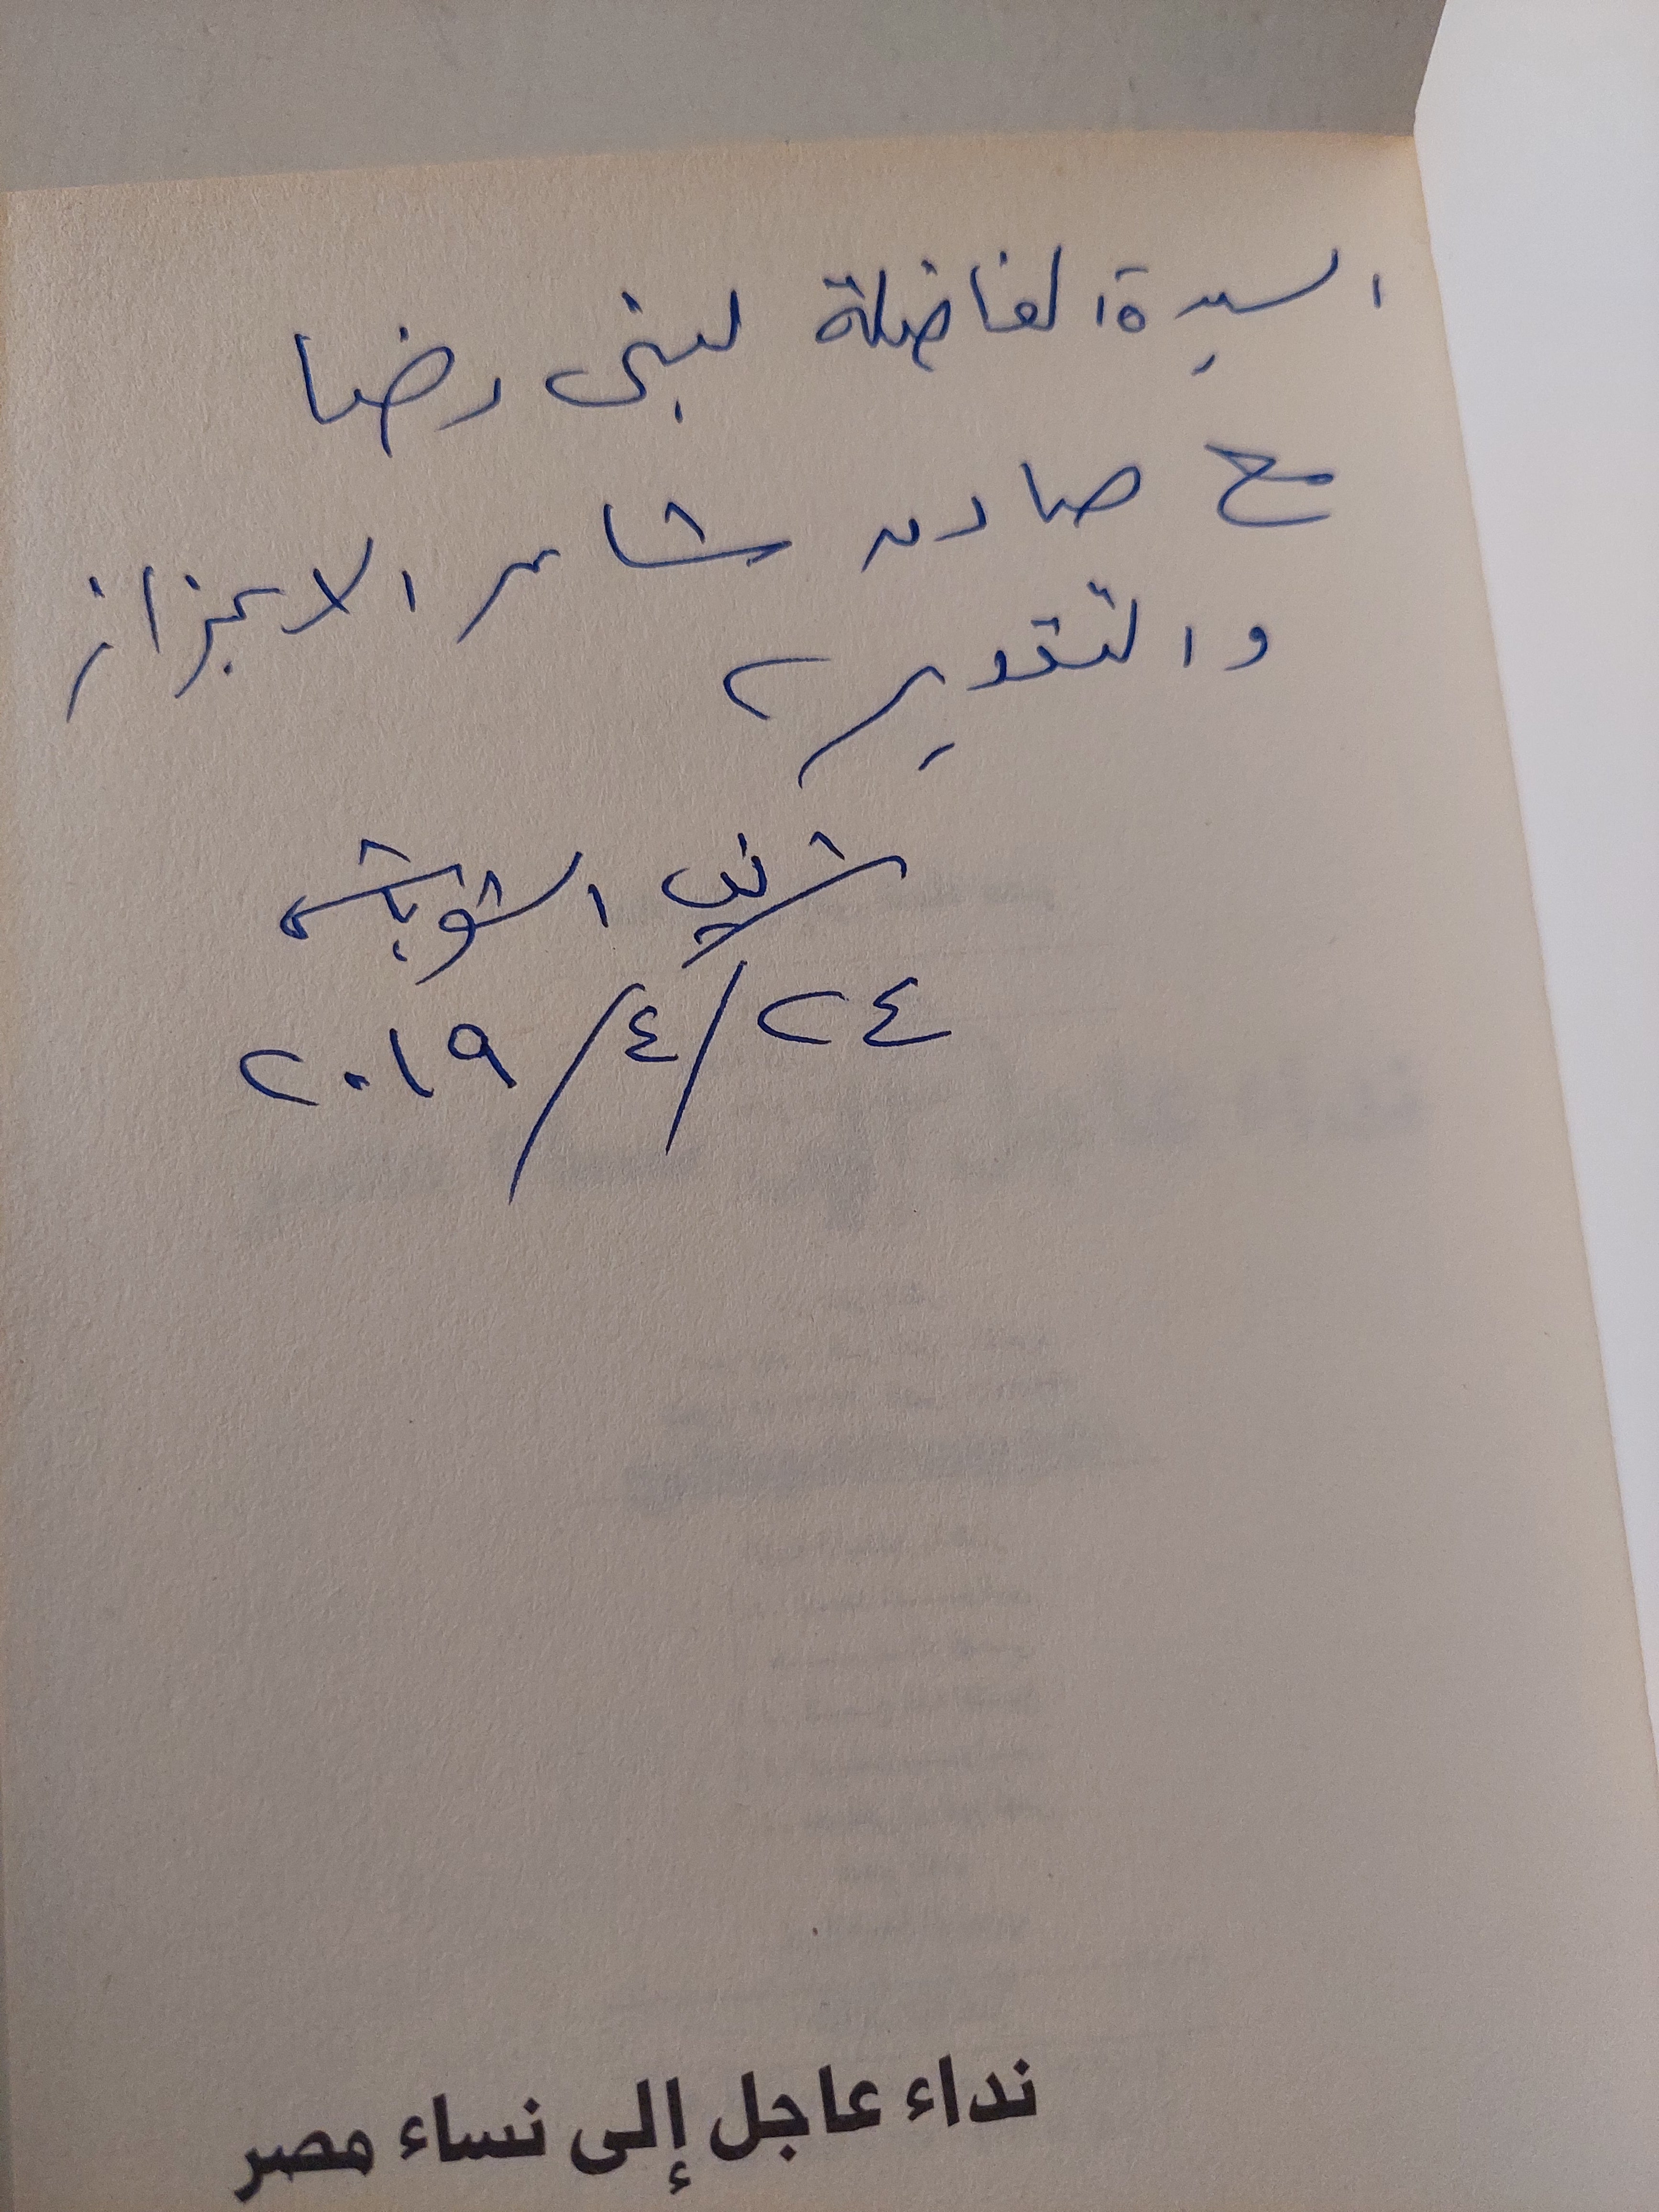 السيدة الفاضلة لبنى رضا
مع صادق مشاعر الاعتزاز
والتقدير،
شريف الشوباشى
٢٤/٤/٢٠١٩
نداء عاجل إلى نساء مصر